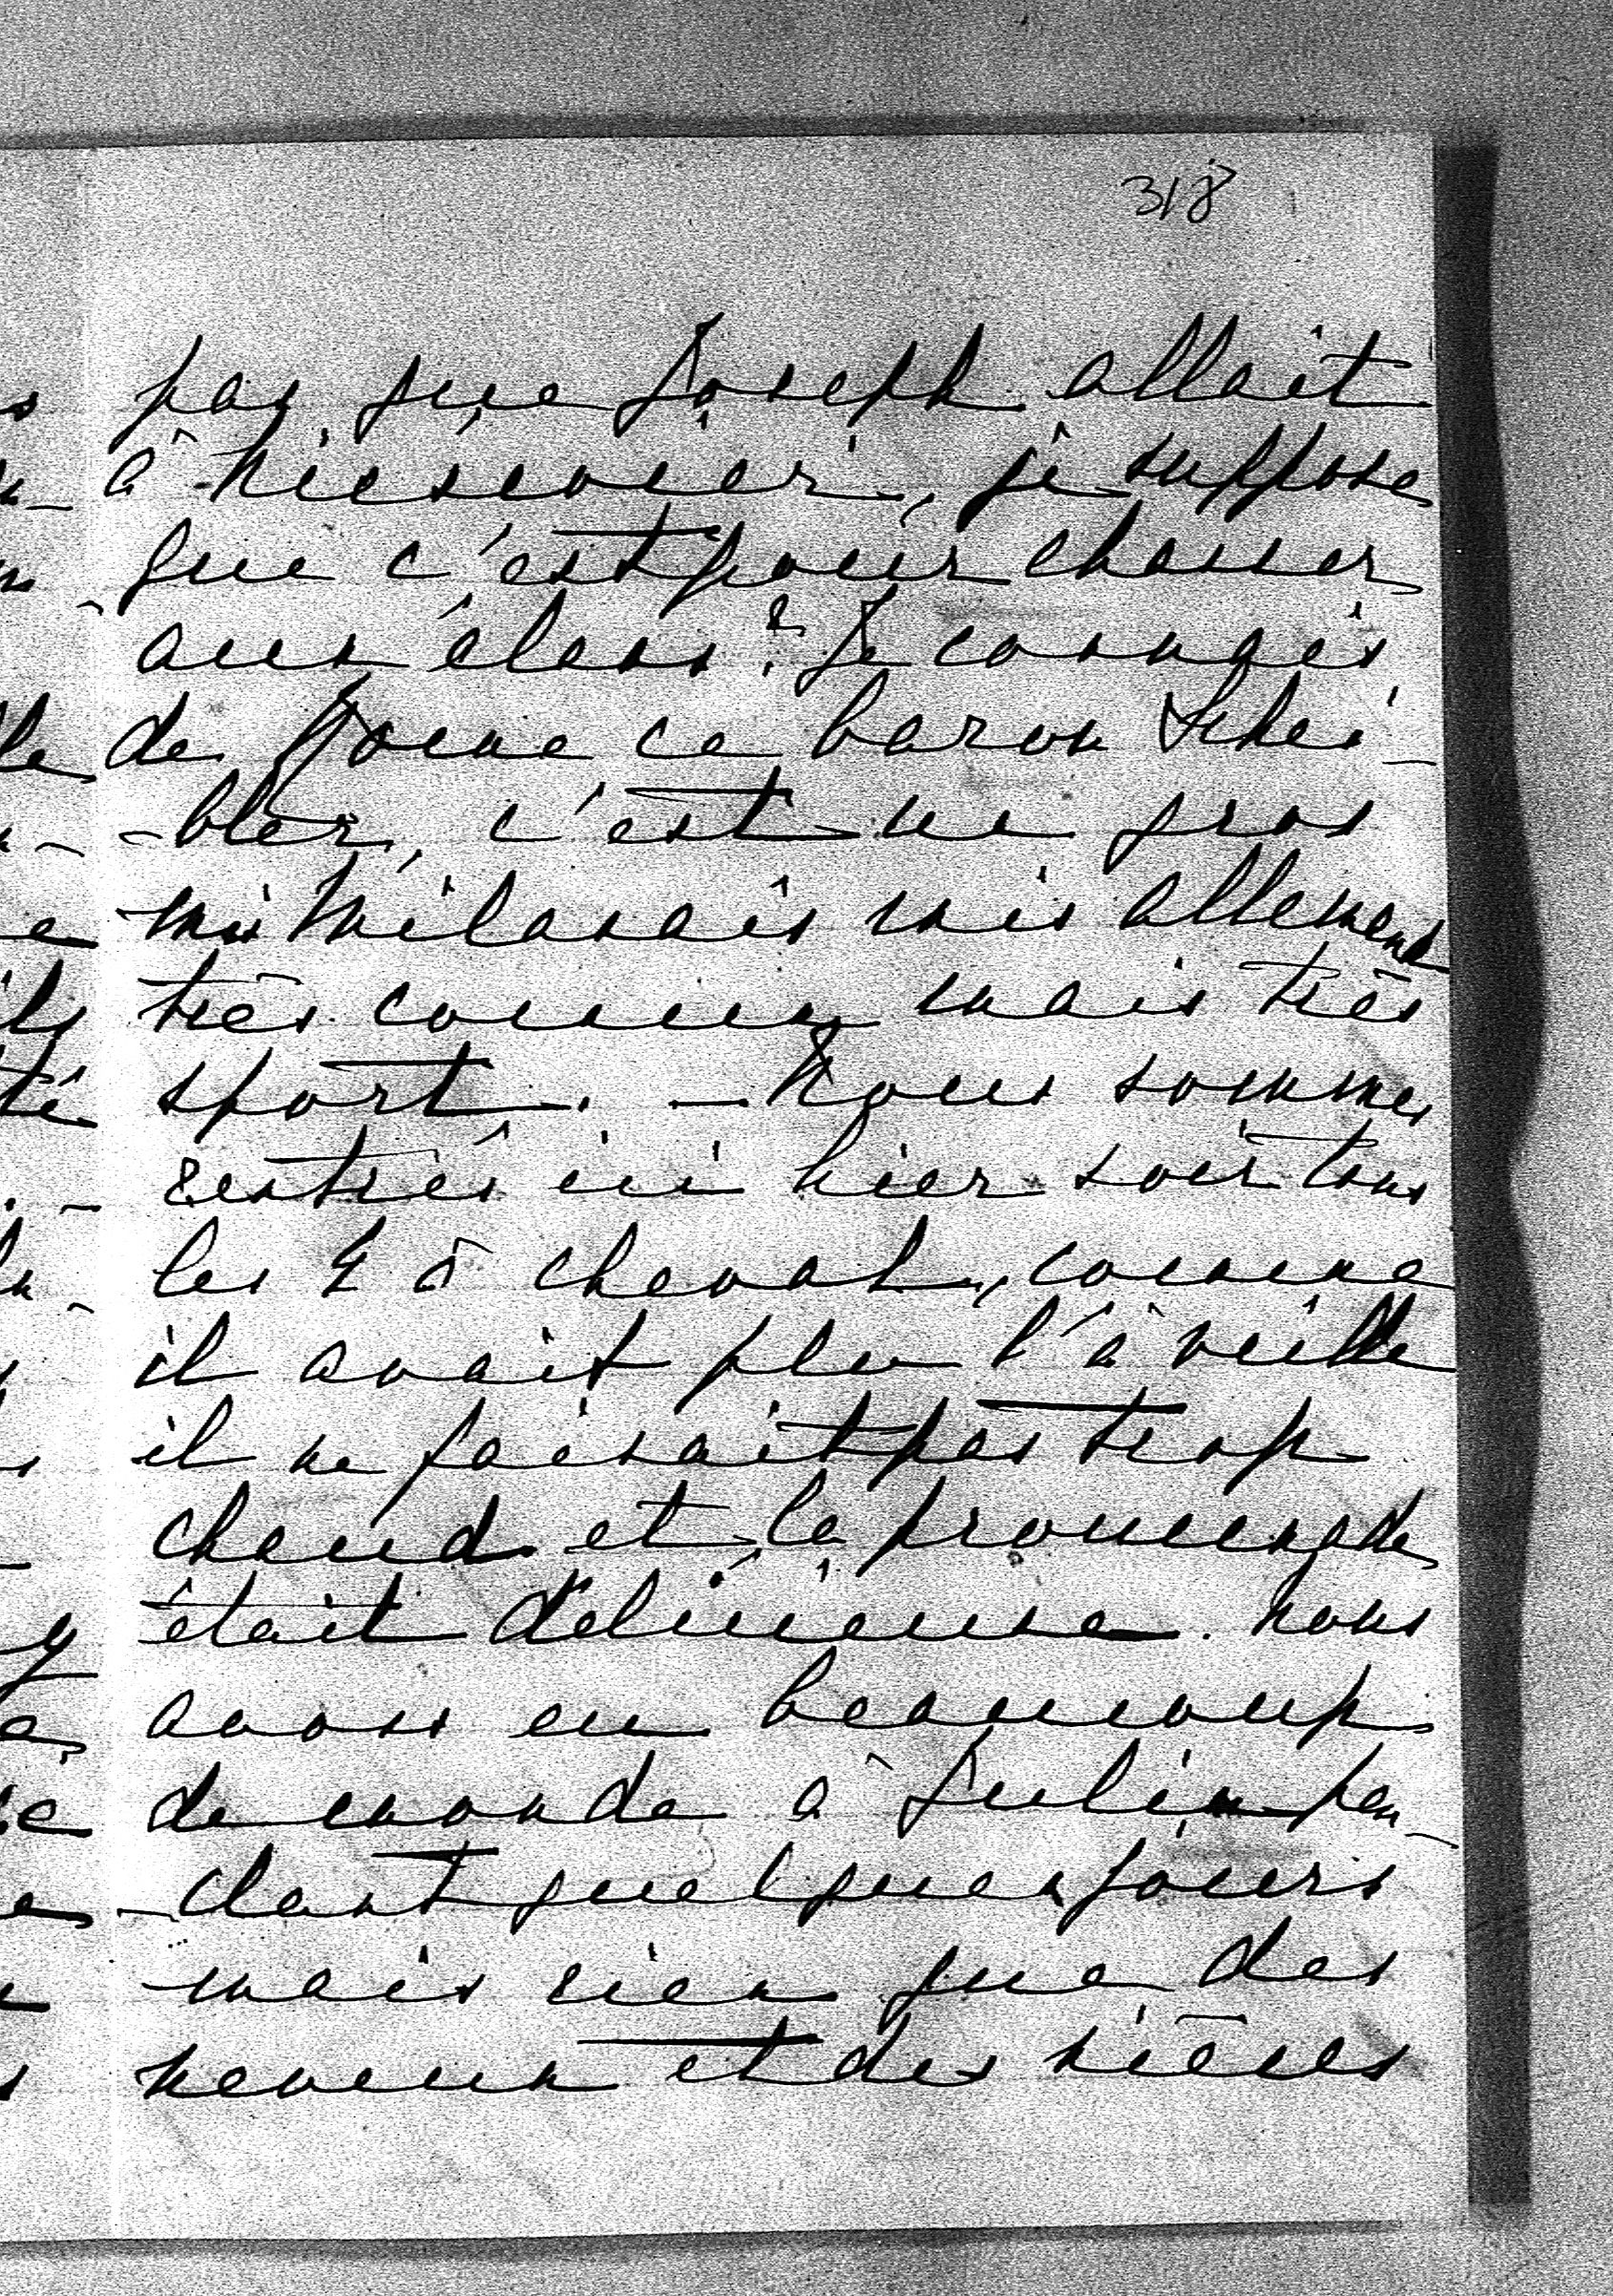 318
pas que Joseph allait
à Nieswier, je suppose
que c'est pour chasser
aux élans? Je connais
de Rome ce baron Schei-
-bler, c'est un gros
mi Milanais mis allemand
très commun mais très
sport. — Nous sommes
rentrés ici hier soir tous
les 2 à cheval, comme
il avait plu l'à veille
il ne faisait pas trop
chaud et la promenade
était délicieuse. Nous
avons eu beaucoup
de monde à Julin pen-
-dant quelques jours
mais rien que des
neveux et des nièces